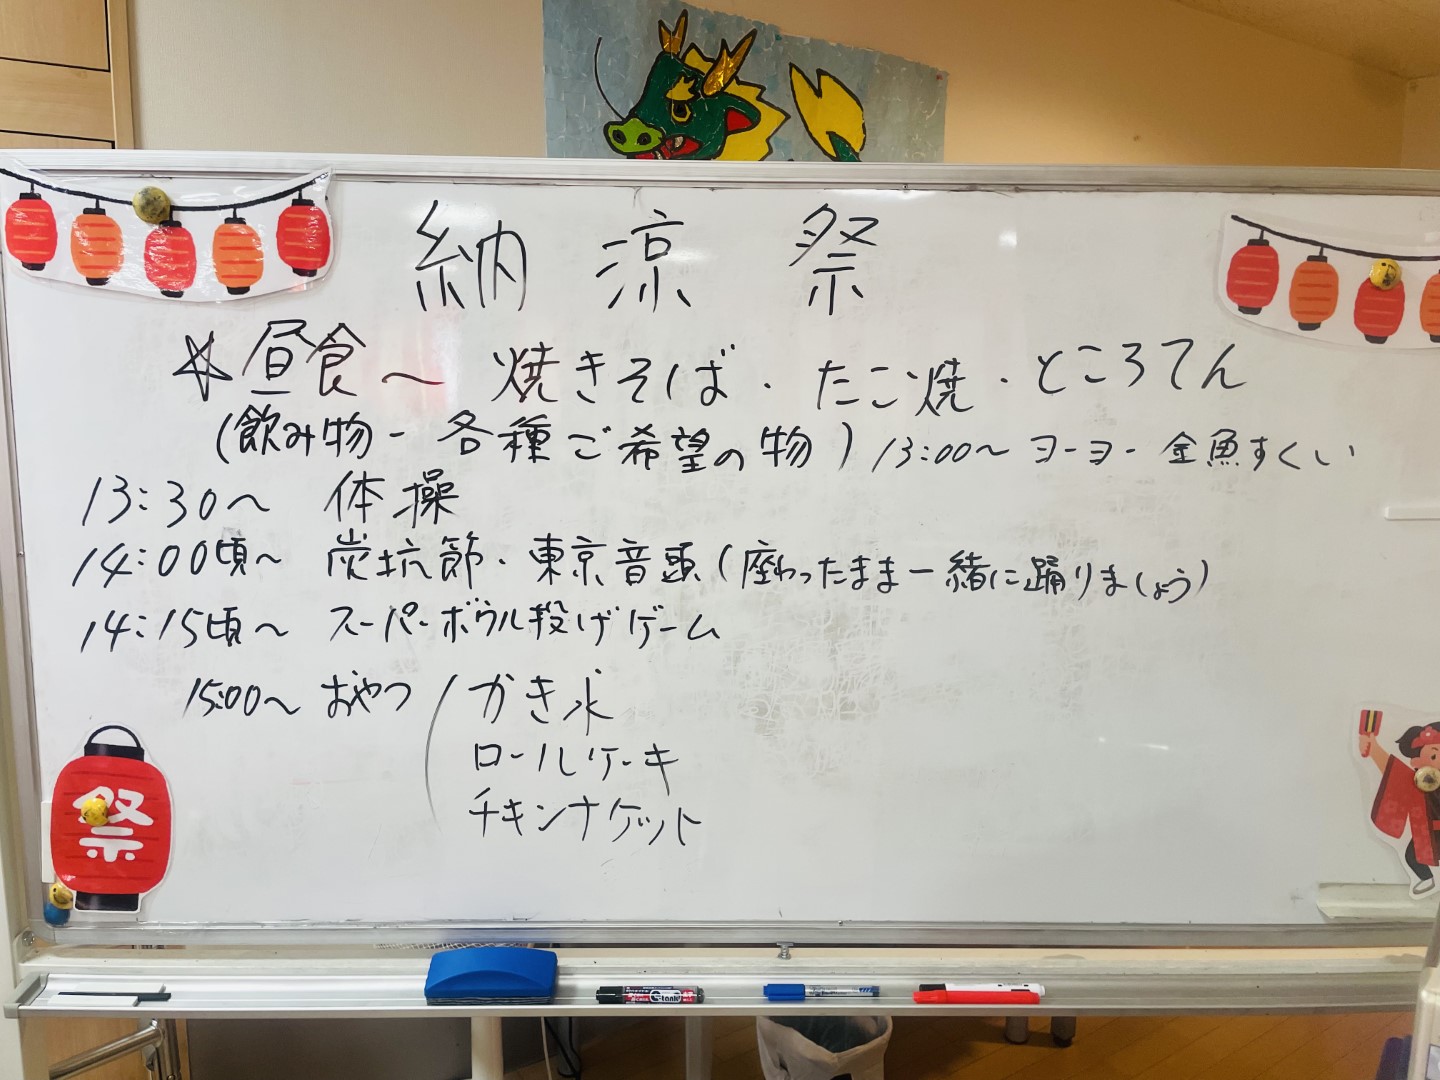 納涼祭
☆昼食〜 焼きそば・たこ焼・ところてん
(飲み物-各種ご希望の物) 13:00〜 ヨーヨー 金魚すくい
13:30〜 体操
14:00頃〜 炭坑節・東京音頭(座わったまま一緒に踊りましょう)
14:15頃〜 スーパーボウル投げゲーム
15:00〜 おやつ(かき氷
ロールケーキ
チキンナゲット
祭